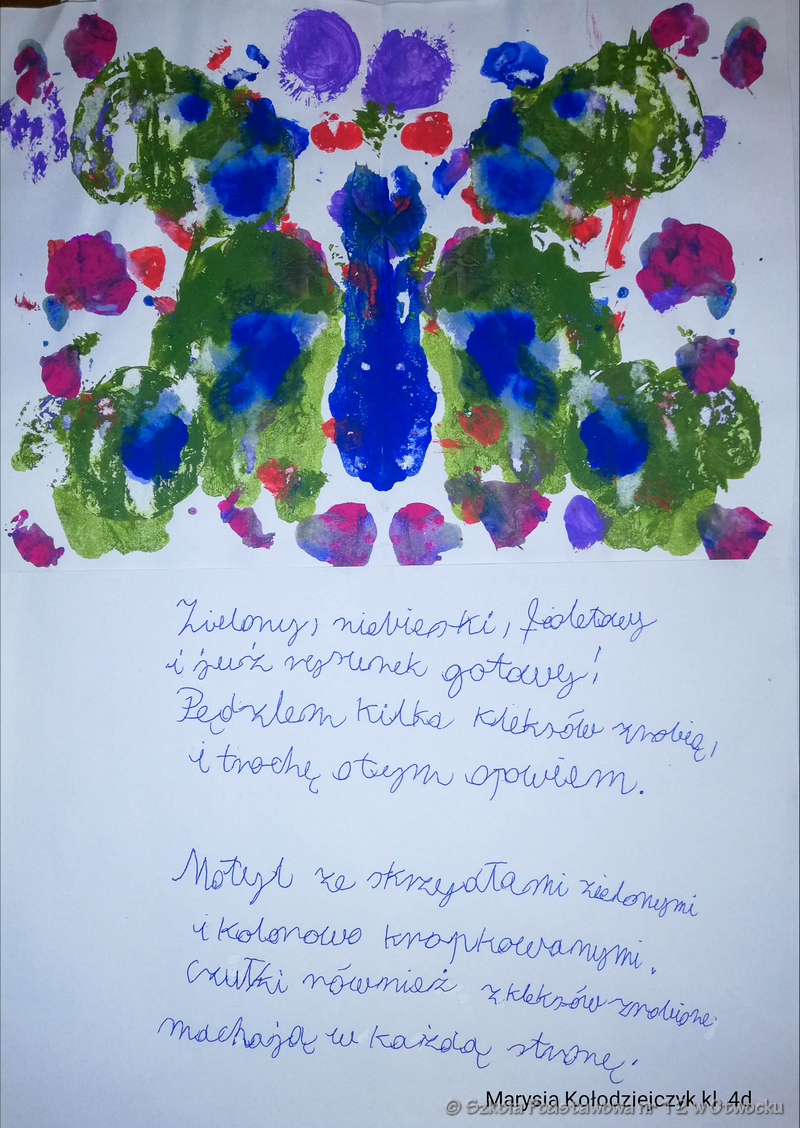 Zielony, niebieski, fioletowy
i już rysunek gotowy!
Pędzlem kilka kleksów zrobię,
i trochę o tym opowiem.
Motyl ze skrzydłami zielonymi
i kolorowo kropkowanymi.
Czułki również z kleksów zrobione
machają w każdą stronę.
Marysia Kołodziejczyk kl. 4d
© Szkoła Podstawowa nr 12 w Otwocku